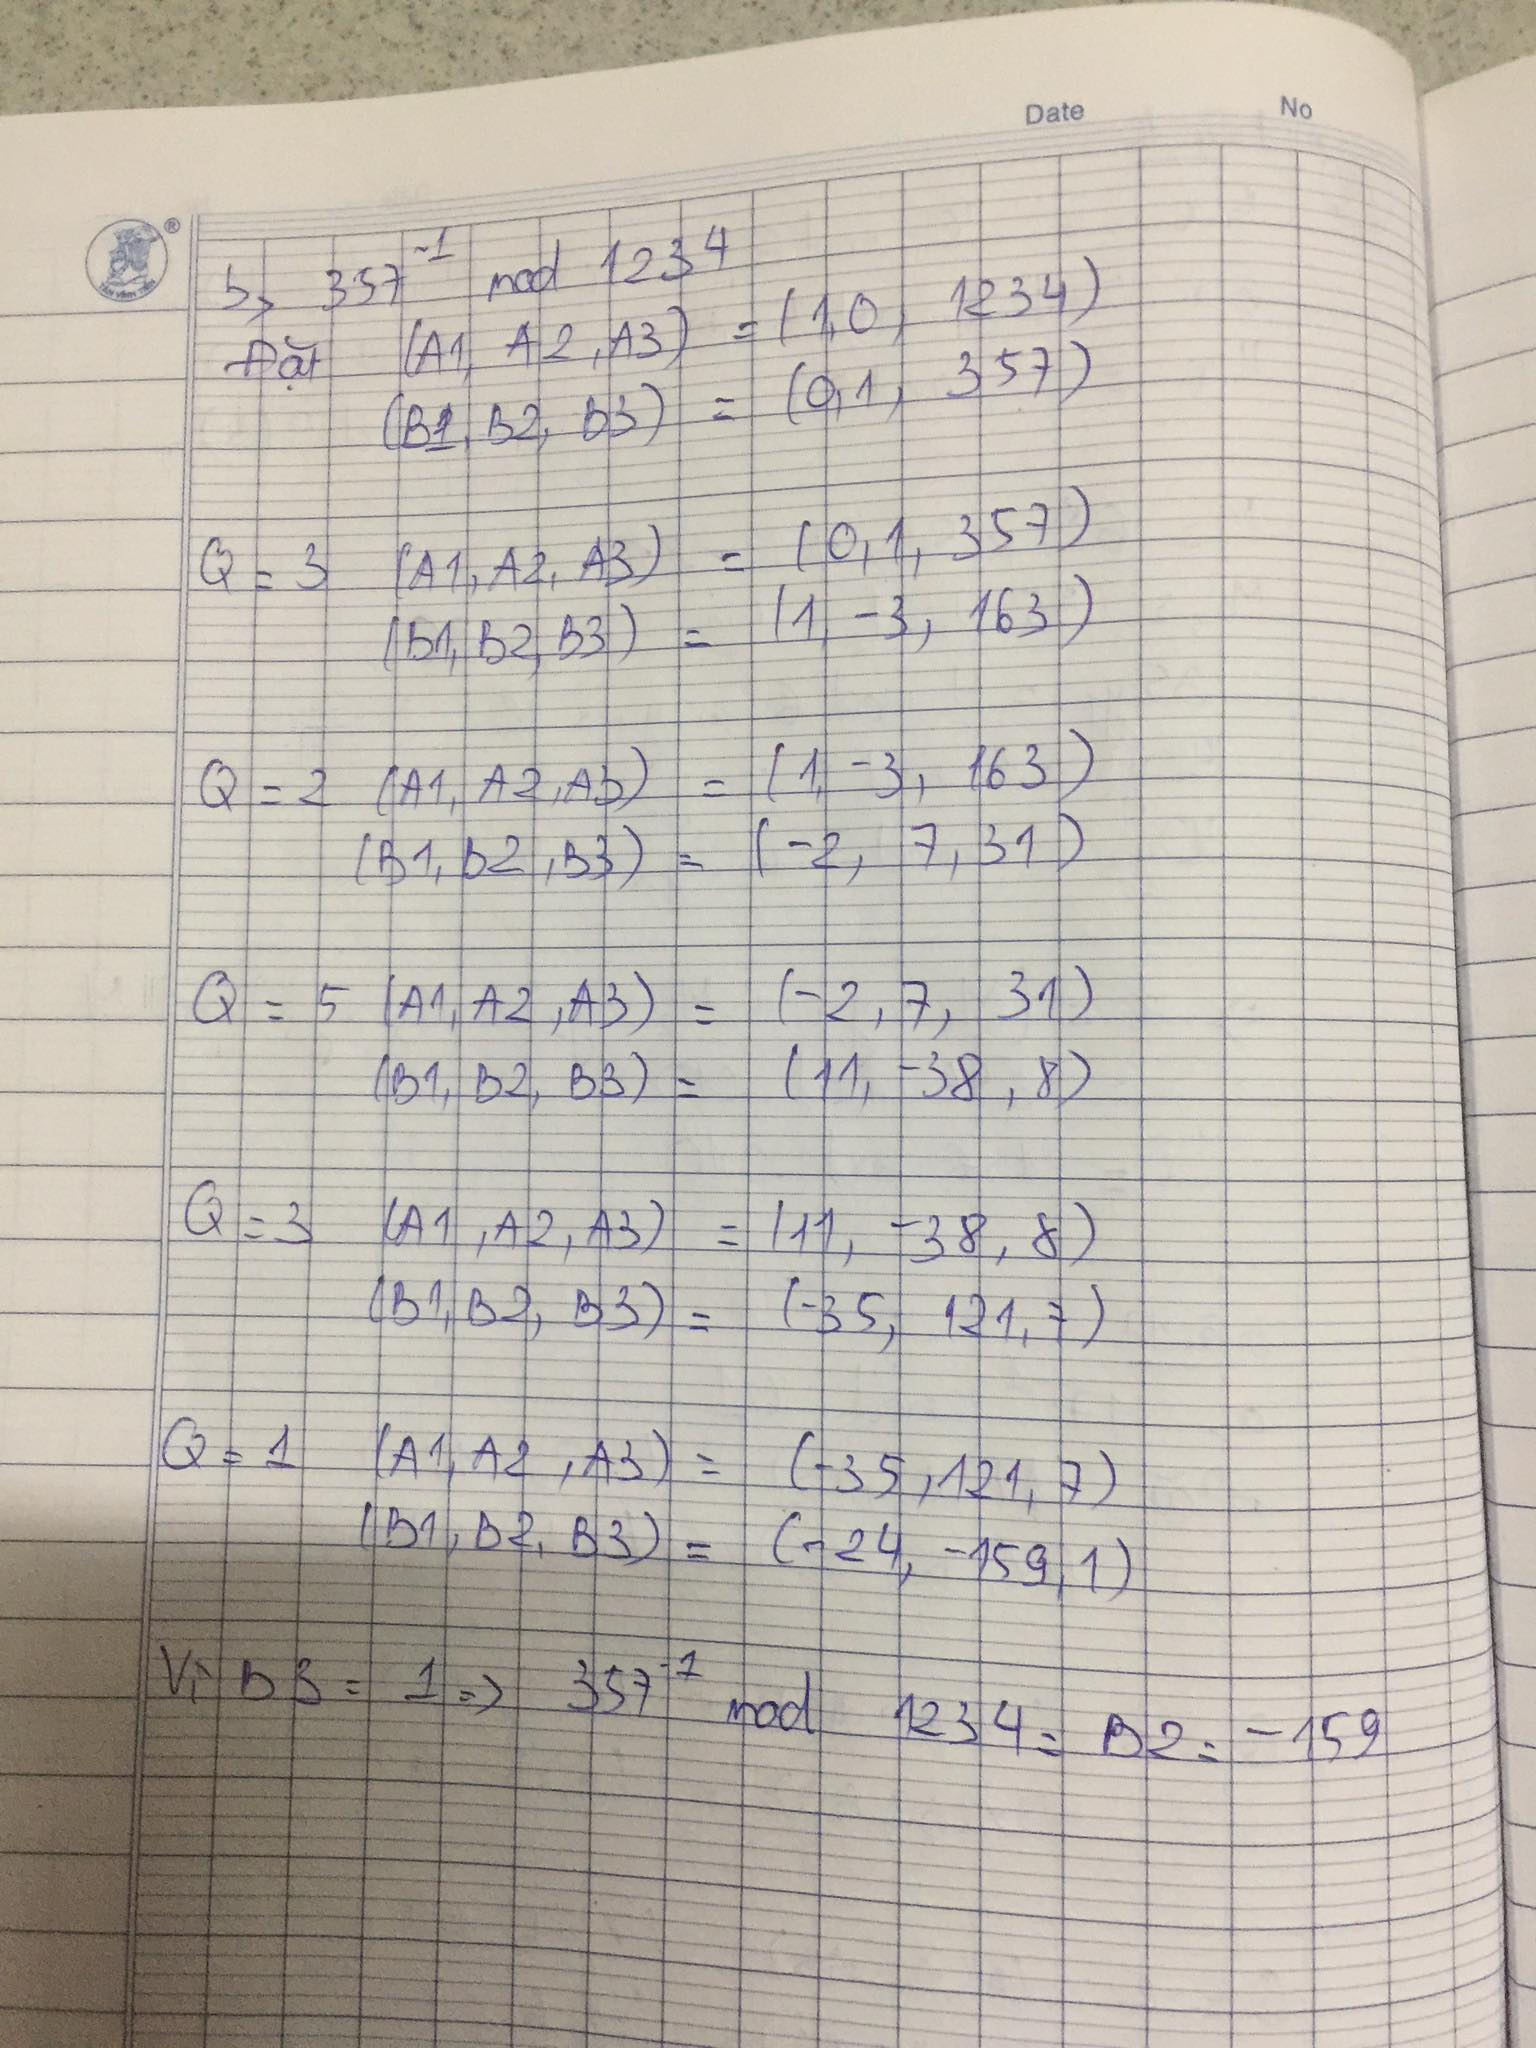 Date No
b, 357⁻¹ mod 1234
Đặt (A1, A2, A3) = (1,0, 1234)
(B1, B2, B3) = (0,1, 357)
Q = 3 (A1, A2, A3) = (0,1, 357)
(B1, B2, B3) = (1, -3, 163)
Q = 2 (A1, A2, A3) = (1, -3, 163)
(B1, B2, B3) = (-2, 7, 31)
Q = 5 (A1, A2, A3) = (-2, 7, 31)
(B1, B2, B3) = (11, -38, 8)
Q = 3 (A1, A2, A3) = (11, -38, 8)
(B1, B2, B3) = (-35, 121, 7)
Q = 1 (A1, A2, A3) = (-35, 121, 7)
(B1, B2, B3) = (-24, -159, 1)
Vì B3 = 1 => 357⁻¹ mod 1234 = B2 = -159